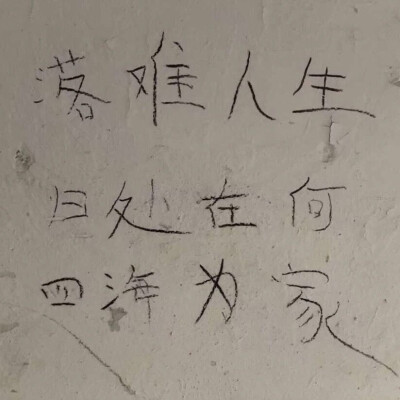 落难人生
日处在何
四海为家